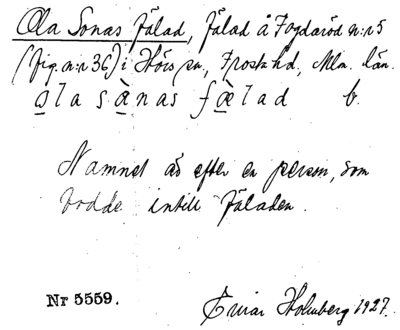 Ola Sonas Fälad, Fälad å Fogdaröd n:r 5
(fig. n:r 36) i Hörs sn, Frosta hd, Mlm. län.
o̲la sà̲nas fæ̲lad b.
Namnet är efter en person, som
bodde intill fäladen.
Nr 5559.
Einar Holmberg 1927.